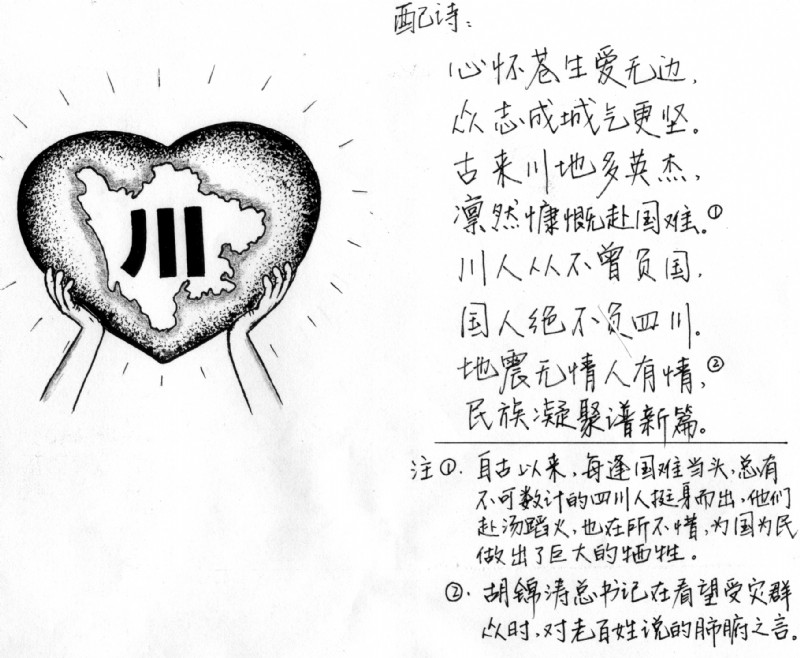 川
配诗:
心怀苍生爱无边,
众志成城气更坚。
古来川地多英杰,
凛然慷慨赴国难。①
川人从不曾负国,
国人绝不负四川。
地震无情人有情,②
民族凝聚谱新篇。
注①.自古以来,每逢国难当头,总有
不可数计的四川人挺身而出,他们
赴汤蹈火,也在所不惜,为国为民
做出了巨大的牺牲。
②.胡锦涛总书记在看望受灾群
众时,对老百姓说的肺腑之言。